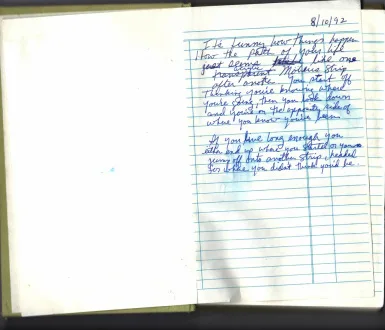 8/10/92
It's funny how things happen
How the path of your life
just seems like one
transparent Mobius strip
after another. You start off
thinking you're knowing where
you're going, then you look down
and you're on the opposite side of
where you know you've been.
If you live long enough you
either end up where you started or you
jump off onto another strip, headed
for where you didn't think you'd be.